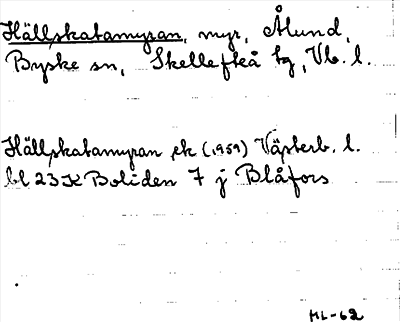 Hällskatamyran, myr, Ålund,
Byske sn, Skellefteå tg, Vb. l.
Hällskatamyran ek (1959) Västerb. l.
bl 23K Boliden 7 j Blåfors
HL-62